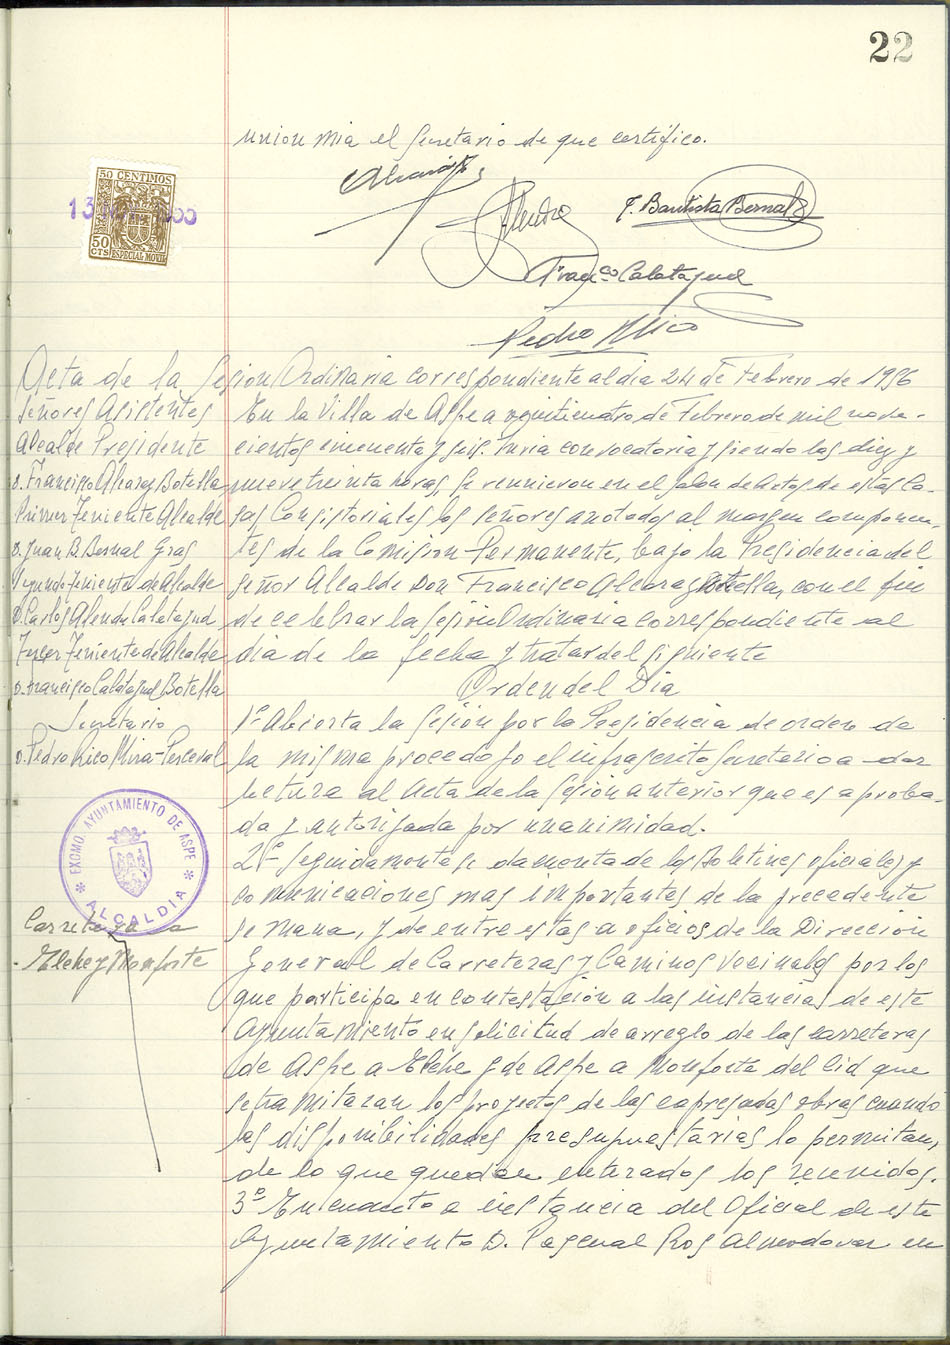 22
union mia el Secretario de que certifico.
50 CENTIMOS
50
CTS ESPECIAL MOVIL
J. Bautista Bernal
Franco Calatayud
Pedro Rico
Acta de la Sesion Ordinaria correspondiente al dia 24 de Febrero de 1956
Señores Asistentes
Alcalde Presidente
D. Francisco Alcaraz Botella
Primer Teniente Alcalde
D. Juan B. Bernal Gras
Segundo Teniente de Alcalde
D. Carlos Alenda Calatayud
Tercer Teniente de Alcalde
D. Francisco Calatayud Botella
Secretario
D. Pedro Rico Mira-Perceval
En la Villa de Aspe a veinticuatro de Febrero de mil nove-
cientos cincuenta y seis. Previa convocatoria y siendo las diez y
nueve treinta horas, se reunieron en el Salon de Actos de estas Ca-
sas Consistoriales los señores anotados al margen componen-
tes de la Comision Permanente, bajo la Presidencia del
Señor Alcalde Don Francisco Alcaraz Botella, con el fin
de celebrar la Sesion Ordinaria correspondiente al
dia de la fecha y tratar del siguiente
Orden del Dia
1º Abierta la Sesión por la Presidencia de orden de
la misma procedo yo el infrascrito Secretario a dar
lectura al Acta de la Sesion anterior que es aproba-
da y autorizada por unanimidad.
2º- Seguidamente se da cuenta de los Boletines oficiales y
comunicaciones mas importantes de la precedente
semana, y de entre estas a oficios de la Dirección
General de Carreteras y Caminos Vecinales por los
que participa en contestación a las instancias de este
Ayuntamiento en solicitud de arreglo de las carreteras
de Aspe a Elche y de Aspe a Monforte del Cid que
se tramitaran los proyectos de las expresadas obras cuando
las disponibilidades presupuestarias lo permitan,
de lo que quedan enterados los reunidos.
3º En cuanto a instancia del Oficial de este
Ayuntamiento D. Pascual Ros Almodovar en
EXCMO. AYUNTAMIENTO DE ASPE
ALCALDIA
Carretera a
Elche y Monforte